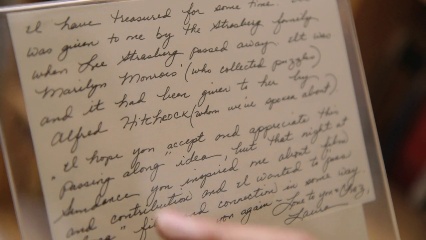 I have treasured for some time. It
was given to me by the Strasberg family
when Lee Strasberg passed away. It was
Marilyn Monroe's (who collected puzzles)
and it had been given to her by
Alfred Hitchcock (whom we've spoken about).
"I hope you accept and appreciate this
passing along" idea, but that night at
Sundance you inspired me about film
and contribution and I wanted to pass
film and connection in some way.
on again - Love to you - Chez,
Laura